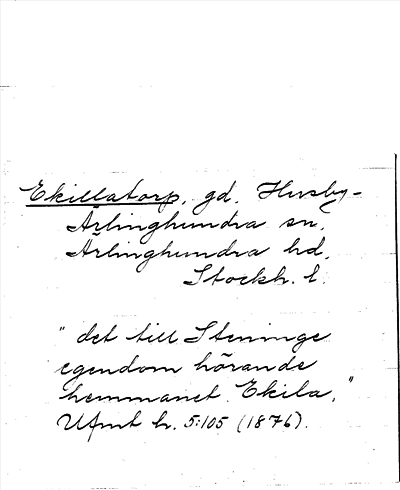 Ekillatorp, gd, Husby-
Ärlinghundra sn,
Ärlinghundra hd,
Stockh. l.
"det till Steninge
egendom hörande
hemmanet Ekila,"
Ufmt h. 5:105 (1876).